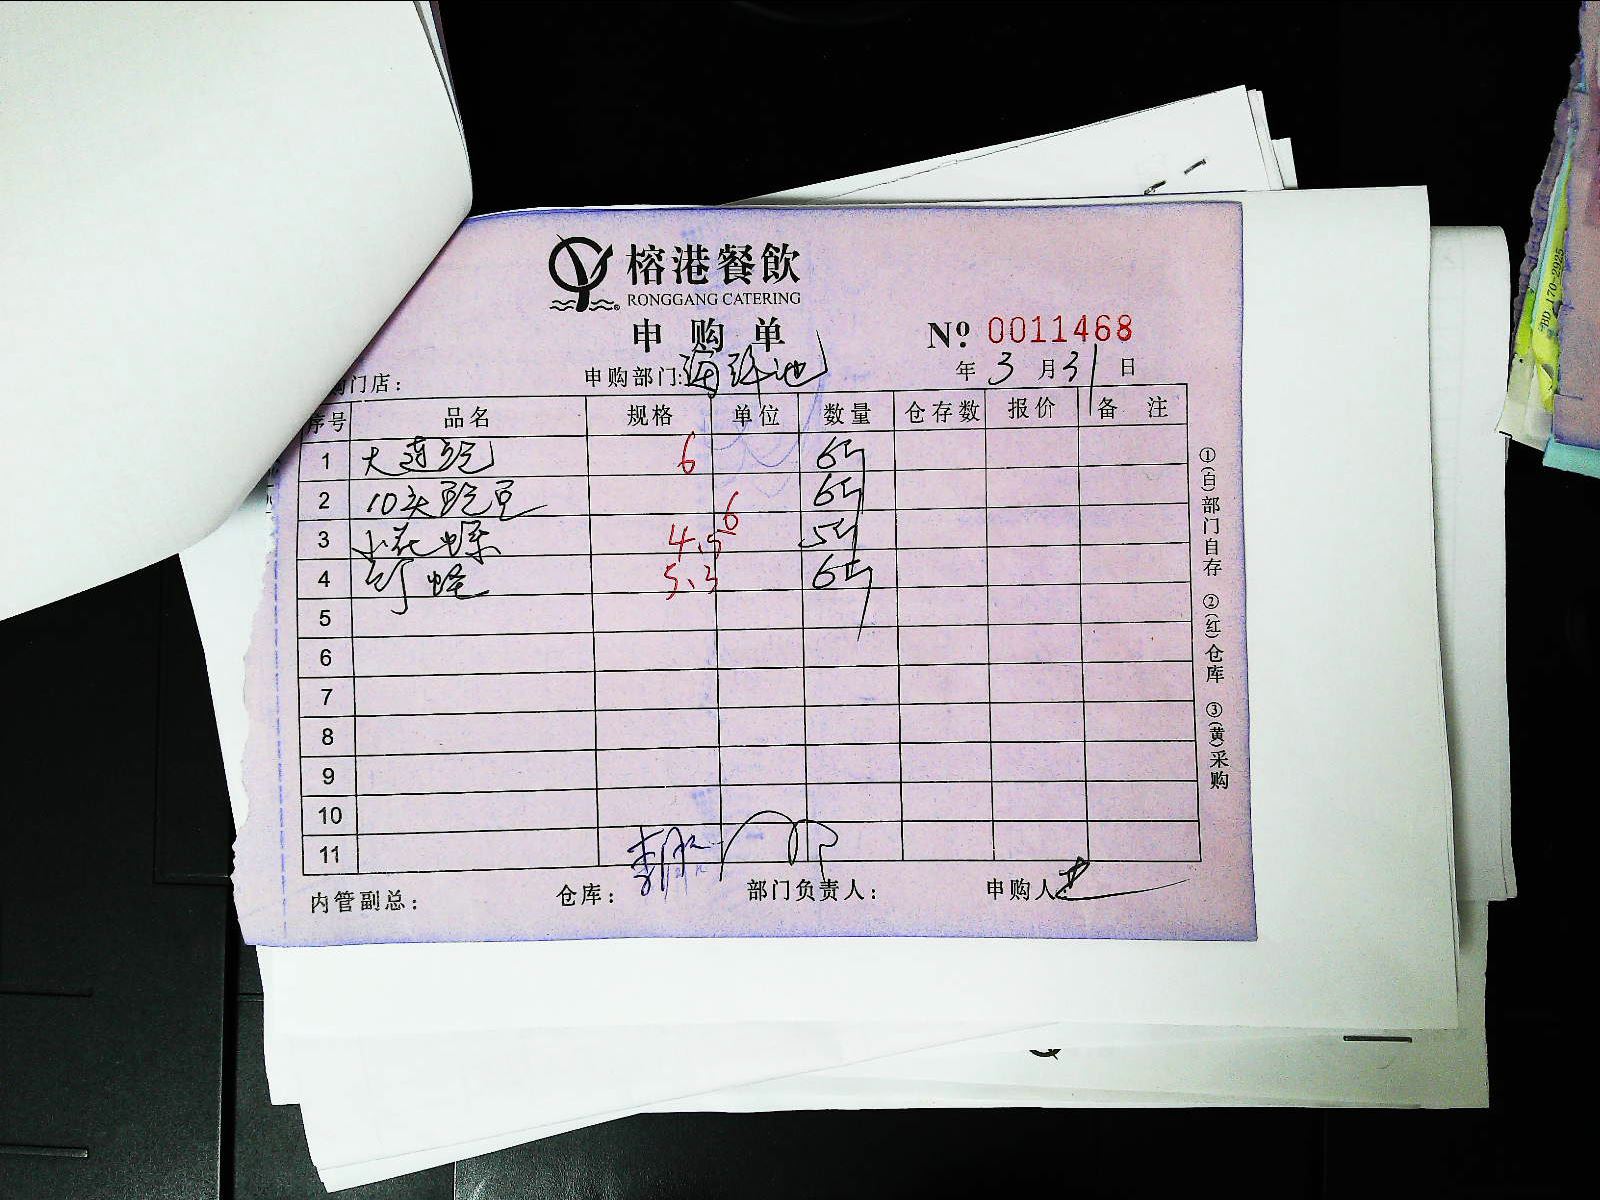 榕港餐飲
RONGGANG CATERING
申购单
Nº 0011468
购门店：
申购部门：海鲜池
年 3 月 31 日
序号 品名 规格 单位 数量 仓存数 报价 备注
1 大连鲍 6 6斤
2 10头鲍 6 6斤
3 小花螺 4.5 5斤
4 6斤 5.3
5
6
7
8
9
10
11
内管副总： 仓库： 部门负责人： 申购人：
①(白)部门自存 ②(红)仓库 ③(黄)采购
BD 170-2925